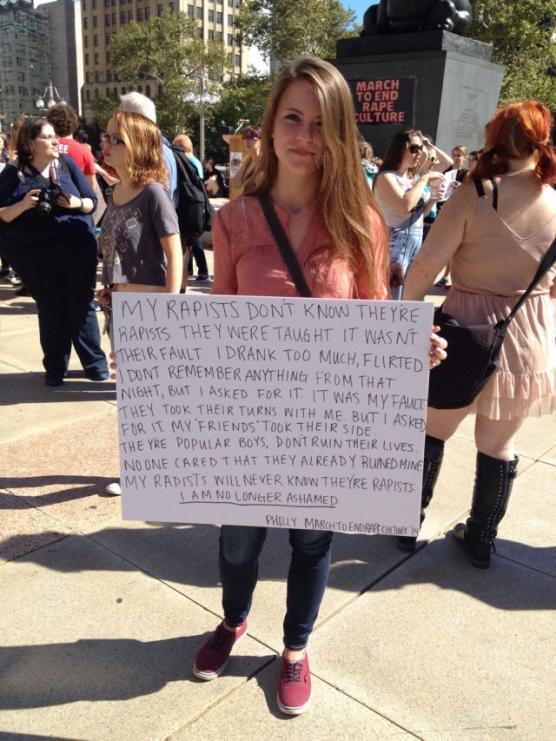 MARCH
TO END
RAPE
CULTURE
MY RAPISTS DON'T KNOW THEY'RE
RAPISTS. THEY WERE TAUGHT IT WASN'T
THEIR FAULT. I DRANK TOO MUCH, FLIRTED
I DONT REMEMBER ANYTHING FROM THAT
NIGHT, BUT I ASKED FOR IT. IT WAS MY FAULT
THEY TOOK THEIR TURNS WITH ME. BUT I ASKED
FOR IT. MY "FRIENDS" TOOK THEIR SIDE.
THEYRE POPULAR BOYS, DON'T RUIN THEIR LIVES.
NO ONE CARED THAT THEY ALREADY RUINED MINE
MY RAPISTS WILL NEVER KNOW THEY'RE RAPISTS.
I AM NO LONGER ASHAMED.
PHILLY MARCH TO END RAPE CULTURE '14